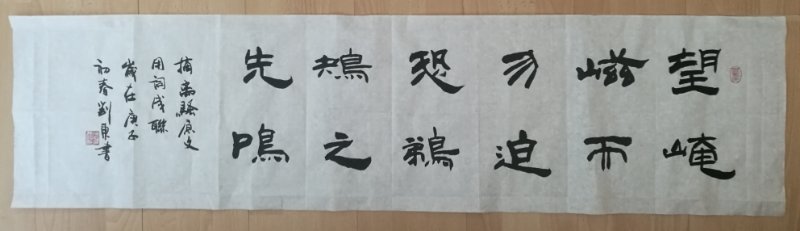 望崦
嵫而
勿迫
恐鵜
鴂之
先鳴
摘离騷原文
用詞成聯
歲在庚子
初春劉東書